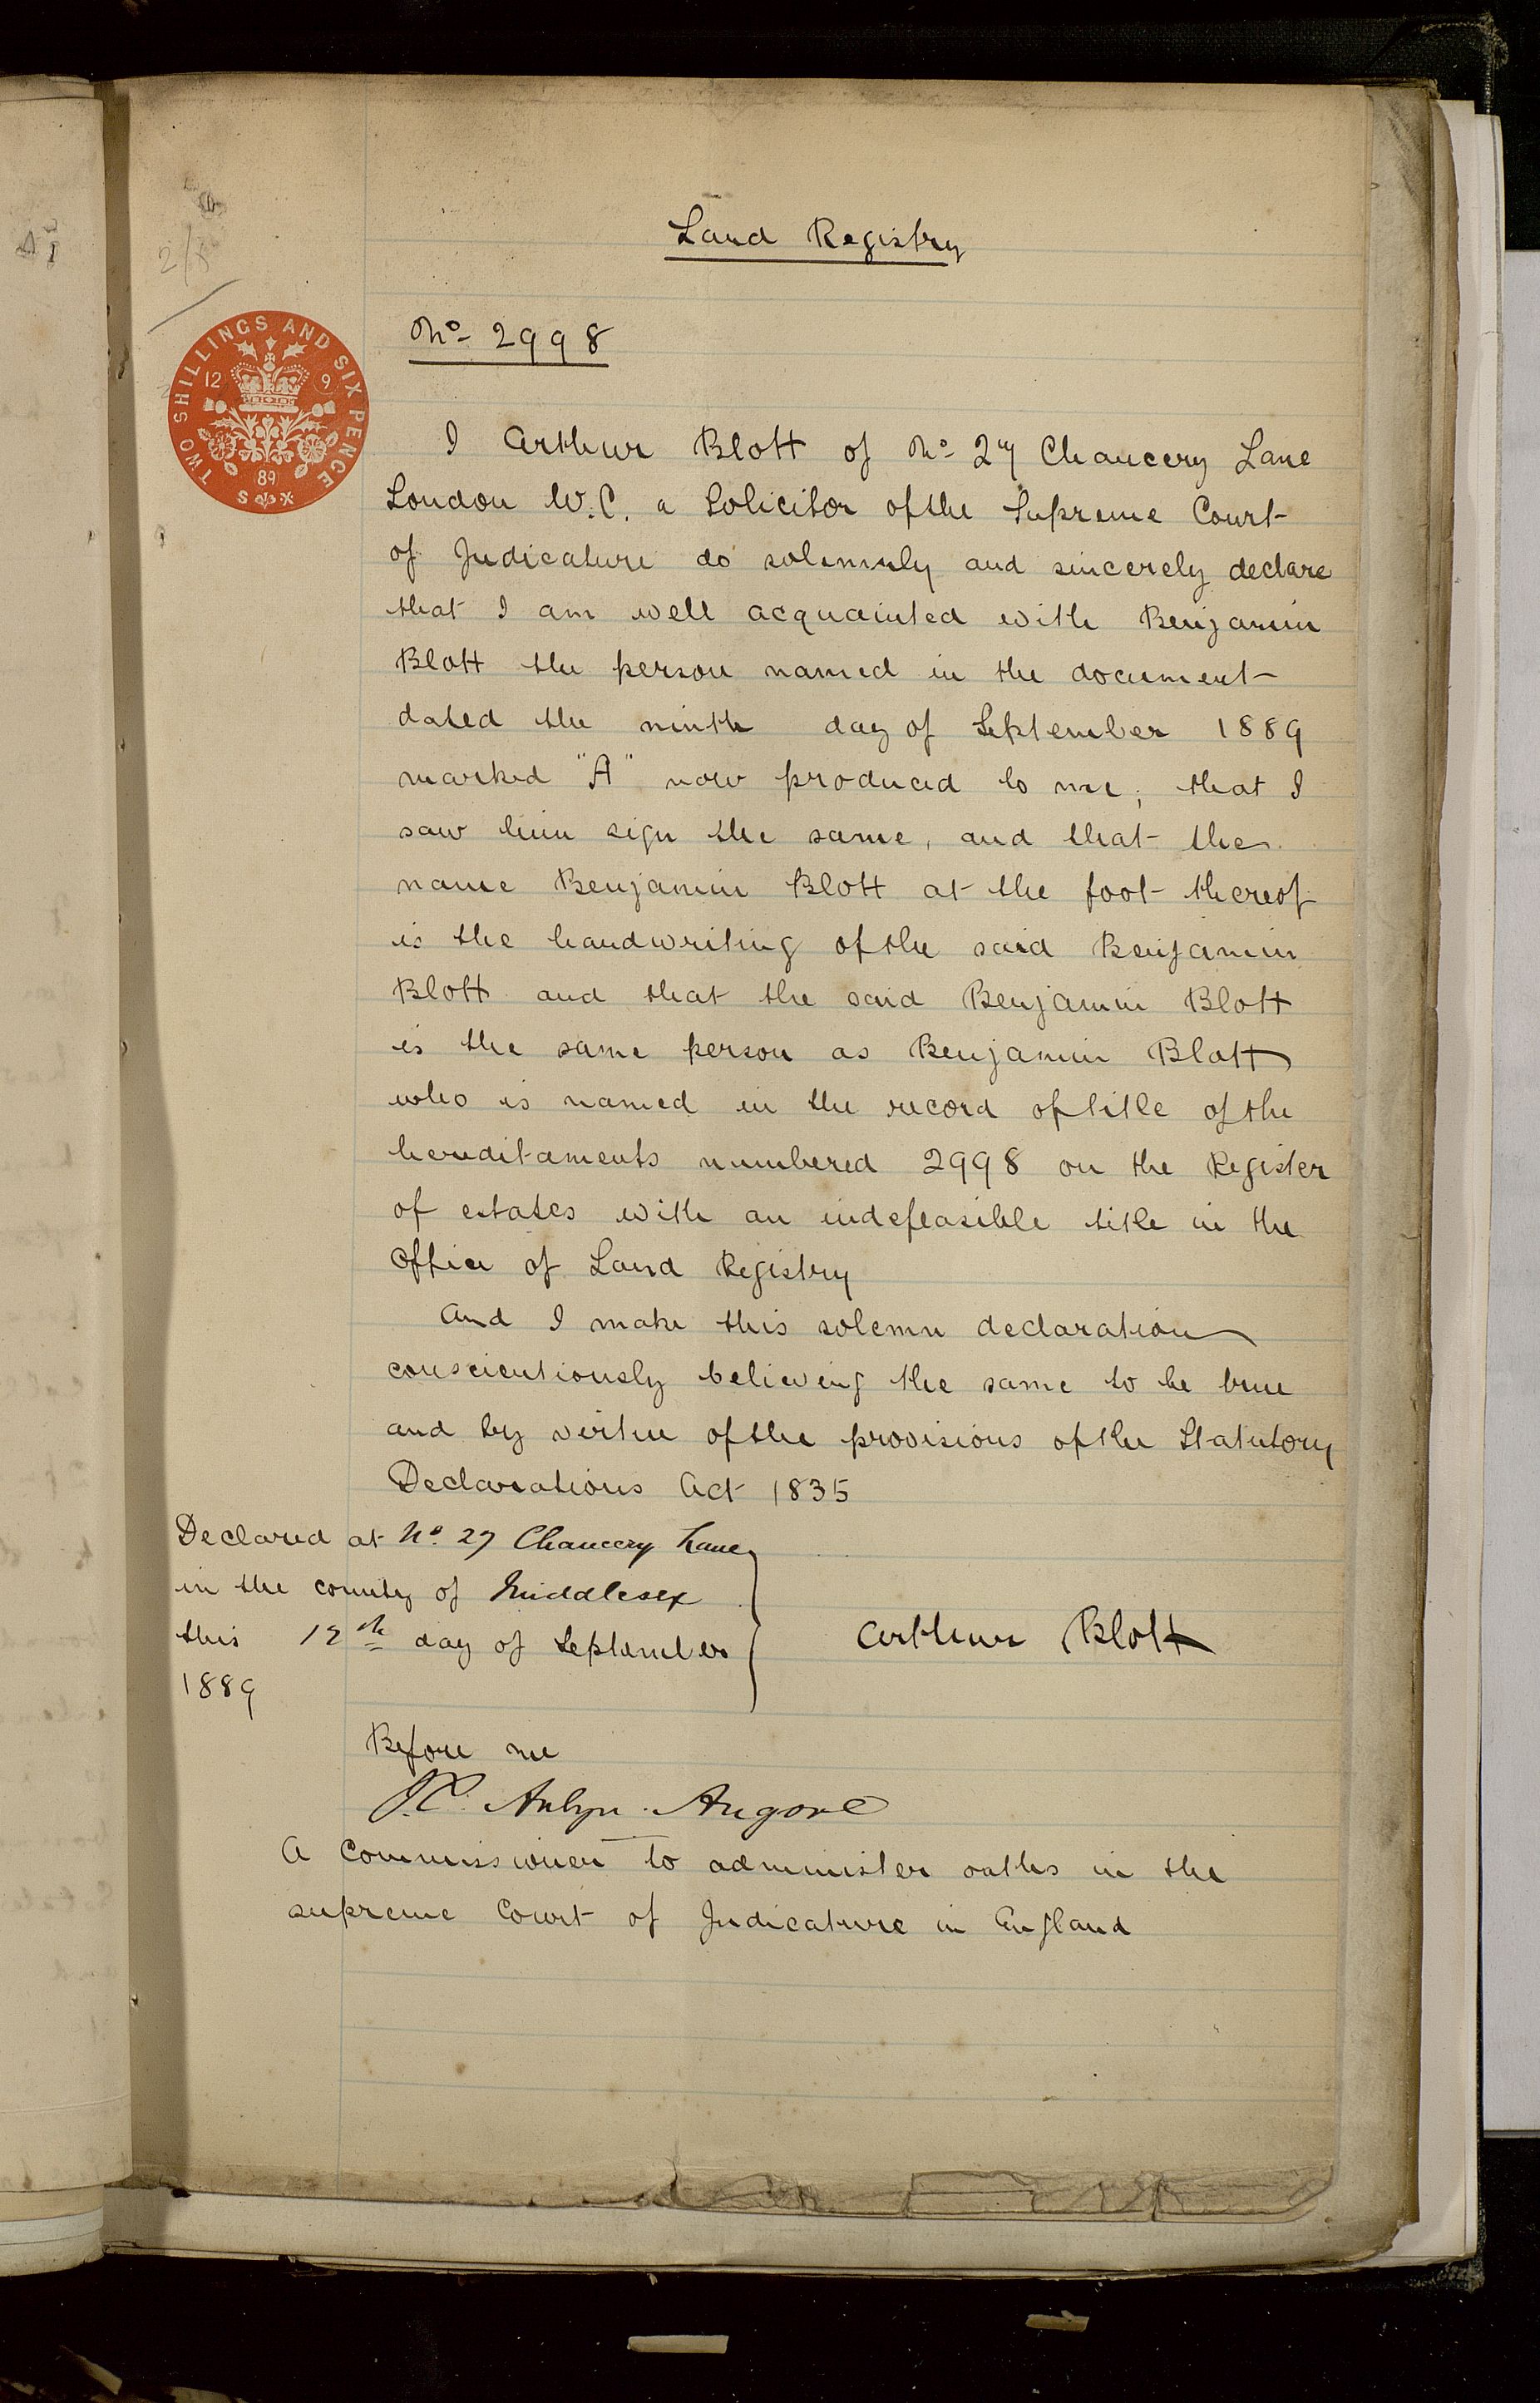 Land Registry
No 2998
TWO SHILLINGS AND SIX PENCE
12 9
89
S
I Arthur Blott of No 27 Chancery Lane
London W.C. a Solicitor of the Supreme Court
of Judicature do solemnly and sincerely declare
that I am well acquainted with Benjamin
Blott the person named in the document
dated the ninth day of September 1889
marked "A" now produced to me; that I
saw him sign the same, and that the
name Benjamin Blott at the foot thereof
is the handwriting of the said Benjamin
Blott and that the said Benjamin Blott
is the same person as Benjamin Blott
who is named in the record of title of the
hereditaments numbered 2998 on the Register
of estates with an indefeasible title in the
Office of Land Registry
And I make this solemn declaration
conscientiously believing the same to be true
and by virtue of the provisions of the Statutory
Declarations Act 1835
Declared at No. 27 Chancery Lane
in the county of Middlesex
this 12th day of September
1889
Arthur Blott
Before me
A Commissioner to administer oaths in the
supreme Court of Judicature in England